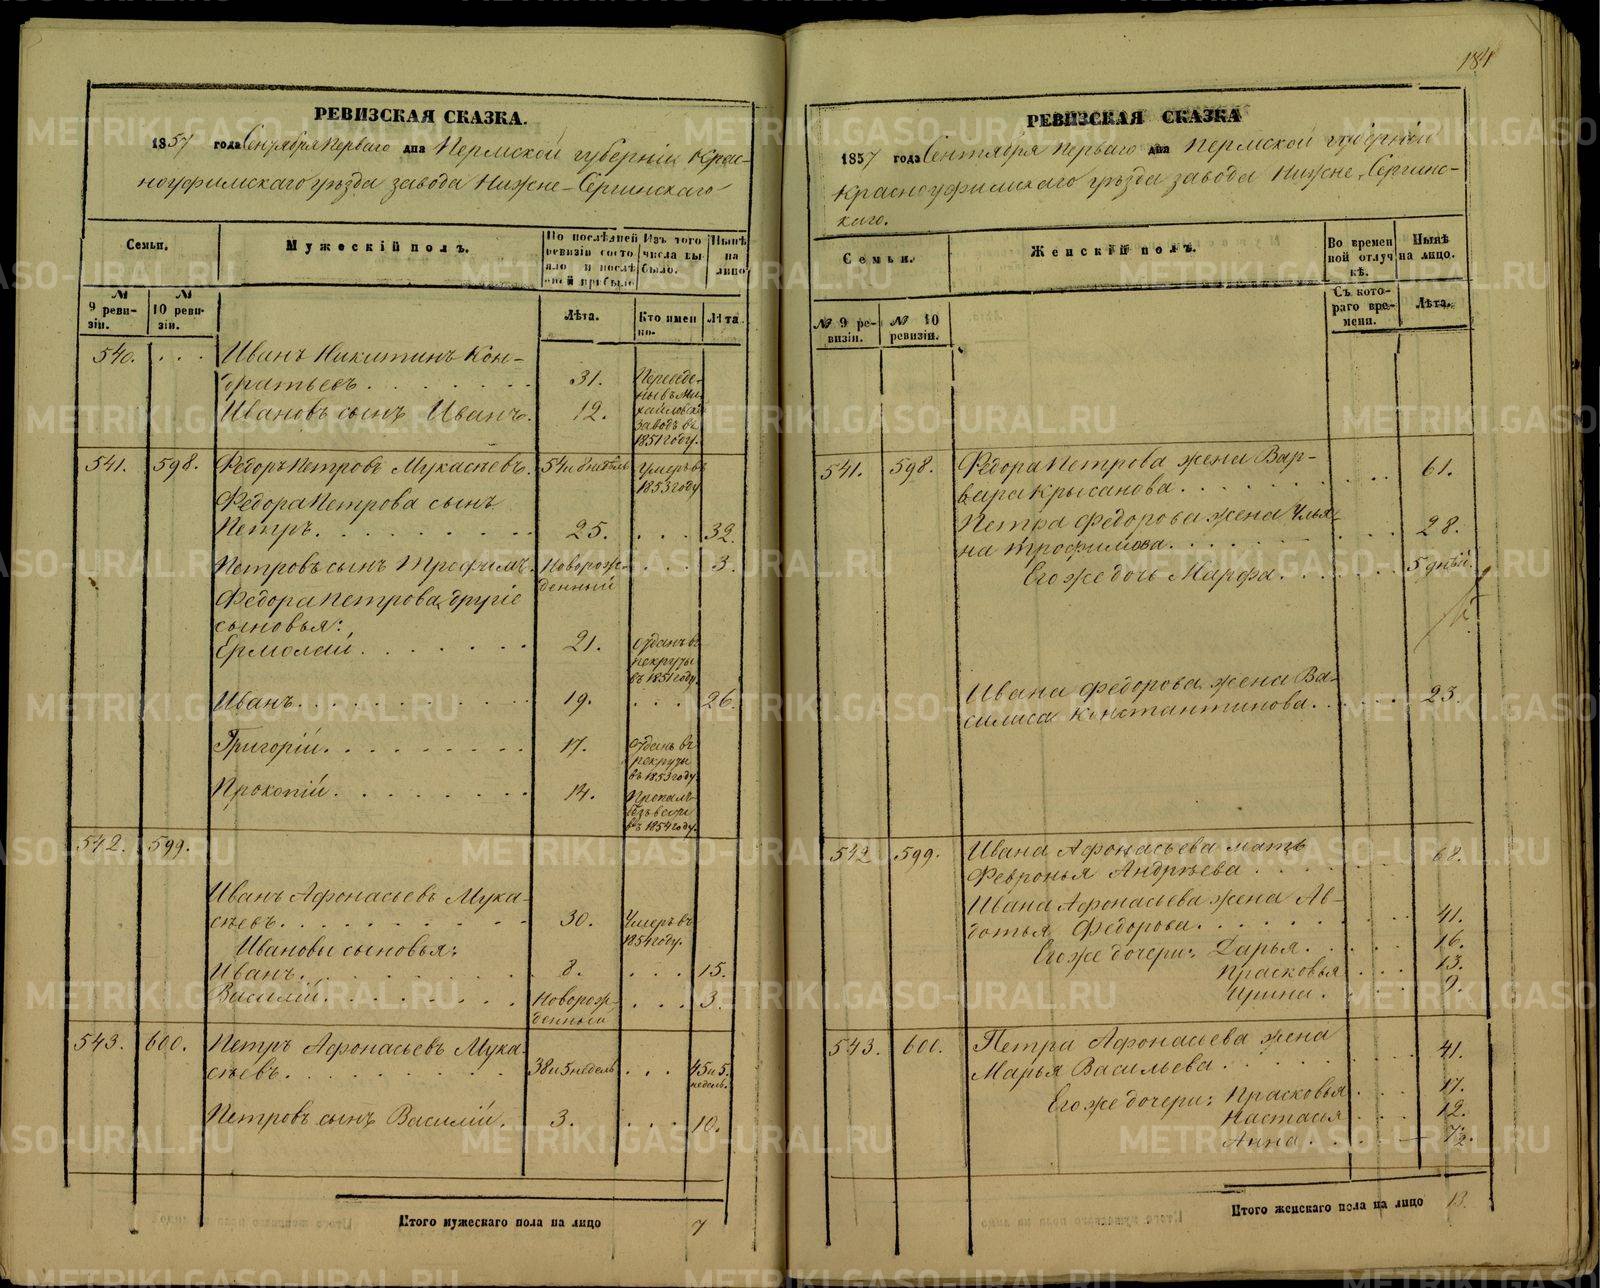 РЕВИЗСКАЯ СКАЗКА.
1857 года Сентября перваго дня Пермской губерніи Крас-
ноуфимскаго уѣзда завода Нижне-Сергинскаго
Семьи.
Мужескій полъ.
По послѣдней ревизіи состояло и послѣ оной прибыло
Изъ того числа выбыло.
Нынѣ на лицо
№ 9 ревизіи.
№ 10 ревизіи.
Лѣта.
Кто именно.
Лѣта
540. . . . Иванъ Никитинъ Кон-
дратьевъ. 31. Переведены въ Михайловскій заводъ въ 1851 году.
Ивановъ сынъ Иванъ. 12.
541. 598. Федоръ Петровъ Мукасѣевъ. 54 умеръ въ 1853 году
Федора Петрова сынъ
Петръ. 25. . . . 32.
Петровъ сынъ Трофимъ. Новорожденный . . . 3.
Федора Петрова другіе
сыновья:
Ермолай. 21. отданъ въ рекруты въ 1851 году.
Иванъ. 19. . . . 26.
Григорій. 17. отданъ въ рекруты въ 1853 году.
Прокопій. 14. Пропалъ безъ вести въ 1854 году.
542. 599.
Иванъ Афонасьевъ Мука-
сѣевъ. 30. Умеръ въ 1854 году.
Ивановы сыновья:
Иванъ. 8. . . . 15.
Василій. Новорожденный . . . 3.
543. 600. Петръ Афонасьевъ Мука-
сѣевъ. 38 и 5 недель . . . 45 и 5 недель.
Петровъ сынъ Василій. 3. . . . 10.
Итого мужескаго пола на лицо 7
184
РЕВИЗСКАЯ СКАЗКА
1857 года Сентября перваго дня Пермской губерніи
Красноуфимскаго уѣзда завода Нижне-Сергинс-
каго.
Семьи.
Женскій полъ.
Во временной отлучкѣ.
Нынѣ на лицо.
№ 9 ревизіи.
№ 10 ревизіи.
Съ котораго времени.
Лѣта.
541. 598. Федора Петрова жена Вар-
вара Крысанова. 61.
Петра Федорова жена Улья-
на Трофимова. 28.
Его же дочь Марфа. 5 дней.
Ивана Федорова жена Ва-
силиса Константинова. 23.
542 599. Ивана Афонасьева мать
Февронья Андрѣева 68.
Ивана Афонасьева жена Ав-
дотья Федорова. 41.
Его же дочери: Дарья. 16.
Прасковья 13.
Ирина. 9.
543. 600. Петра Афонасьева жена
Марья Васильева. 41.
Его же дочери: Прасковья 17.
Настасья 12.
Анна.
Итого женскаго пола на лицо 13.
METRIKI.GASO-URAL.RU